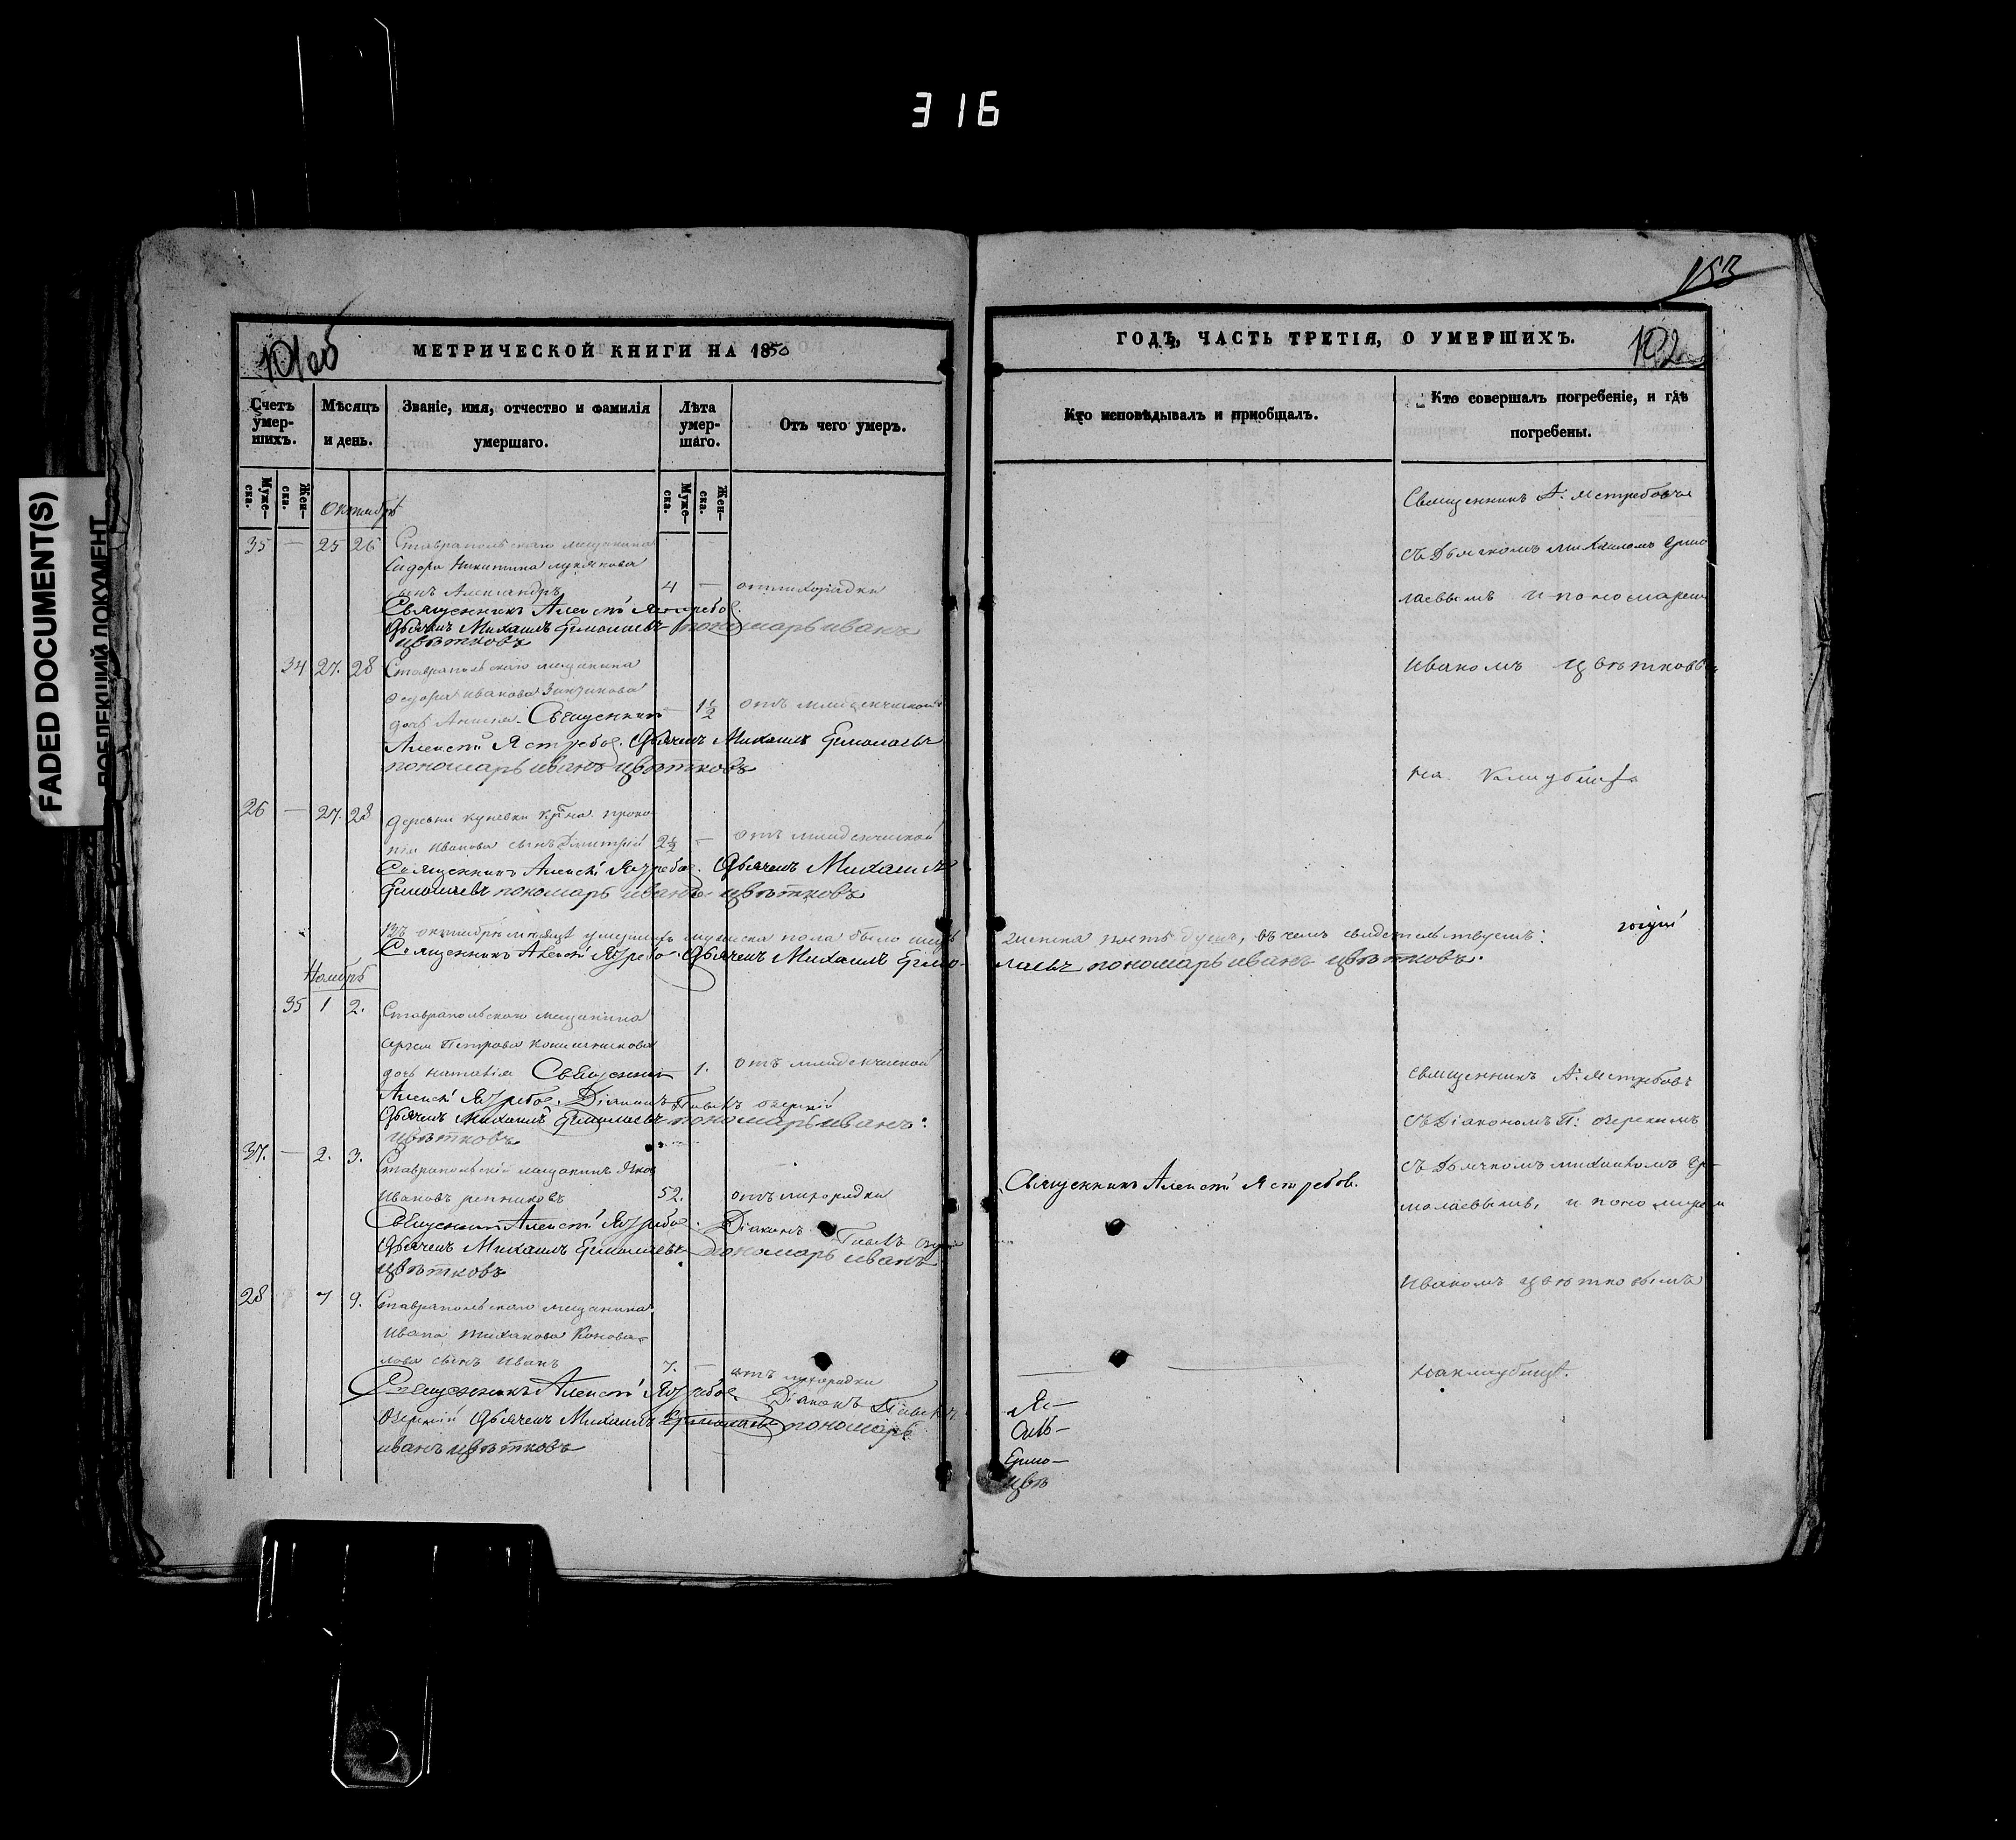 316
FADED DOCUMENT(S)
ПОБЛЕКШИЙ ДОКУМЕНТ
153
101об
МЕТРИЧЕСКОЙ КНИГИ НА 1850
Счетъ умер-шихъ.
Мѣсяцъ и день.
Званіе, имя, отчество и фамилія умершаго.
Лѣта умер-шаго.
Отъ чего умеръ.
Муже-ска.
Жен-ска.
Муже-ска.
Жен-ска.
Октябрь
35 — 25 26 Ставропольскаго мещанина
Сидора Никитина
сынъ Александръ 4 — отъ лихорадки
Священникъ Алексѣй Ястребов.
Дьячекъ Михаилъ Ермолаевъ пономарь иванъ
цвѣтковъ
34 27. 28 Ставропольскаго мещанина
Федора иванова
дочь Священникъ — 1½ отъ младенческой
Алексѣй Ястребов. Дьячекъ Михаилъ Ермолаевъ
пономарь иванъ цвѣтковъ
26 — 27. 28 деревни
иванова сынъ Дмитрій 2½ — отъ младенческой
Священникъ Алексѣй Ястребов. Дьячекъ Михаилъ
Ермолаевъ пономарь иванъ цвѣтковъ
Въ октябрѣ месяцѣ умершихъ мужеска пола было
Священникъ Алексѣй Ястребов. Дьячекъ Михаилъ Ермо-
Ноябрь
35 1 2. Ставропольскаго мещанина
Петрова
дочь наталія Священникъ 1. отъ младенческой
Алексѣй Ястребов. Діаконъ Павелъ озерскій
Дьячекъ Михаилъ Ермолаевъ пономарь иванъ
цвѣтковъ
37. — 2. 3. Ставропольскій мещанинъ
Ивановъ репниковъ 52. отъ лихорадки
Священникъ Алексѣй Ястребов. Діаконъ Павелъ
Дьячекъ Михаилъ Ермолаевъ пономарь иванъ
цвѣтковъ
28 7 9. Ставропольскаго мещанина
Ивана Конова-
лова сынъ Иванъ 7. — отъ лихорадки
Священникъ Алексѣй Ястребов Діаконъ Павелъ
Озерскій Дьячекъ Михаилъ Ермолаевъ пономарь
иванъ цвѣтковъ
ГОДЪ, ЧАСТЬ ТРЕТІЯ, О УМЕРШИХЪ.
102
Кто исповѣдывалъ и пріобщалъ.
Кто совершалъ погребеніе, и гдѣ погребены.
Священникъ А. Ястребовъ
съ Дьячкомъ михаиломъ Ермо
лаевымъ и пономаремъ
Иваномъ цвѣтковымъ
на кладбищѣ
женска душъ, въ чемъ свидетельствуемъ:
лаевъ пономарь иванъ цвѣтковъ.
священникъ А. Ястребовъ
съ Діакономъ П: озерскимъ
съ Дьячкомъ михаиломъ Ер-
молаевымъ, и пономаремъ
Священникъ Алексѣй Ястребов.
Иваномъ цвѣтковымъ
на кладбищѣ.
Яс-
Ермо-
цвѣ